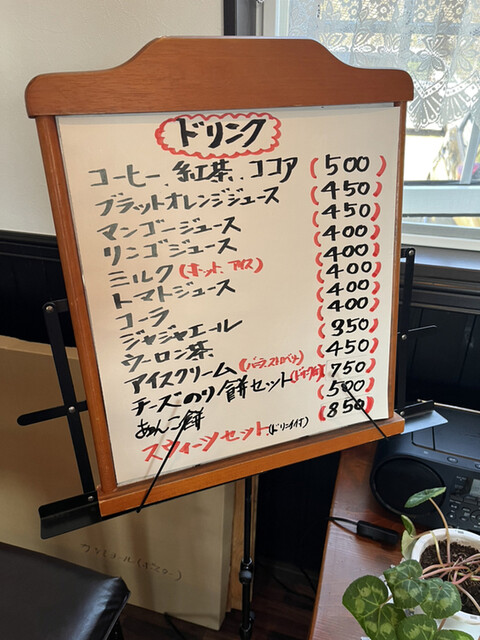 ドリンク
コーヒー、紅茶、ココア (500)
ブラットオレンジジュース (450)
マンゴージュース (450)
リンゴジュース (400)
ミルク(ホット、アイス) (400)
トマトジュース (400)
コーラ (400)
ジャジャエール (350)
ウーロン茶 (450)
アイスクリーム
チーズのり餅セット 750
あんこ餅 (500)
スウィーツセット(ドリンク付) (850)